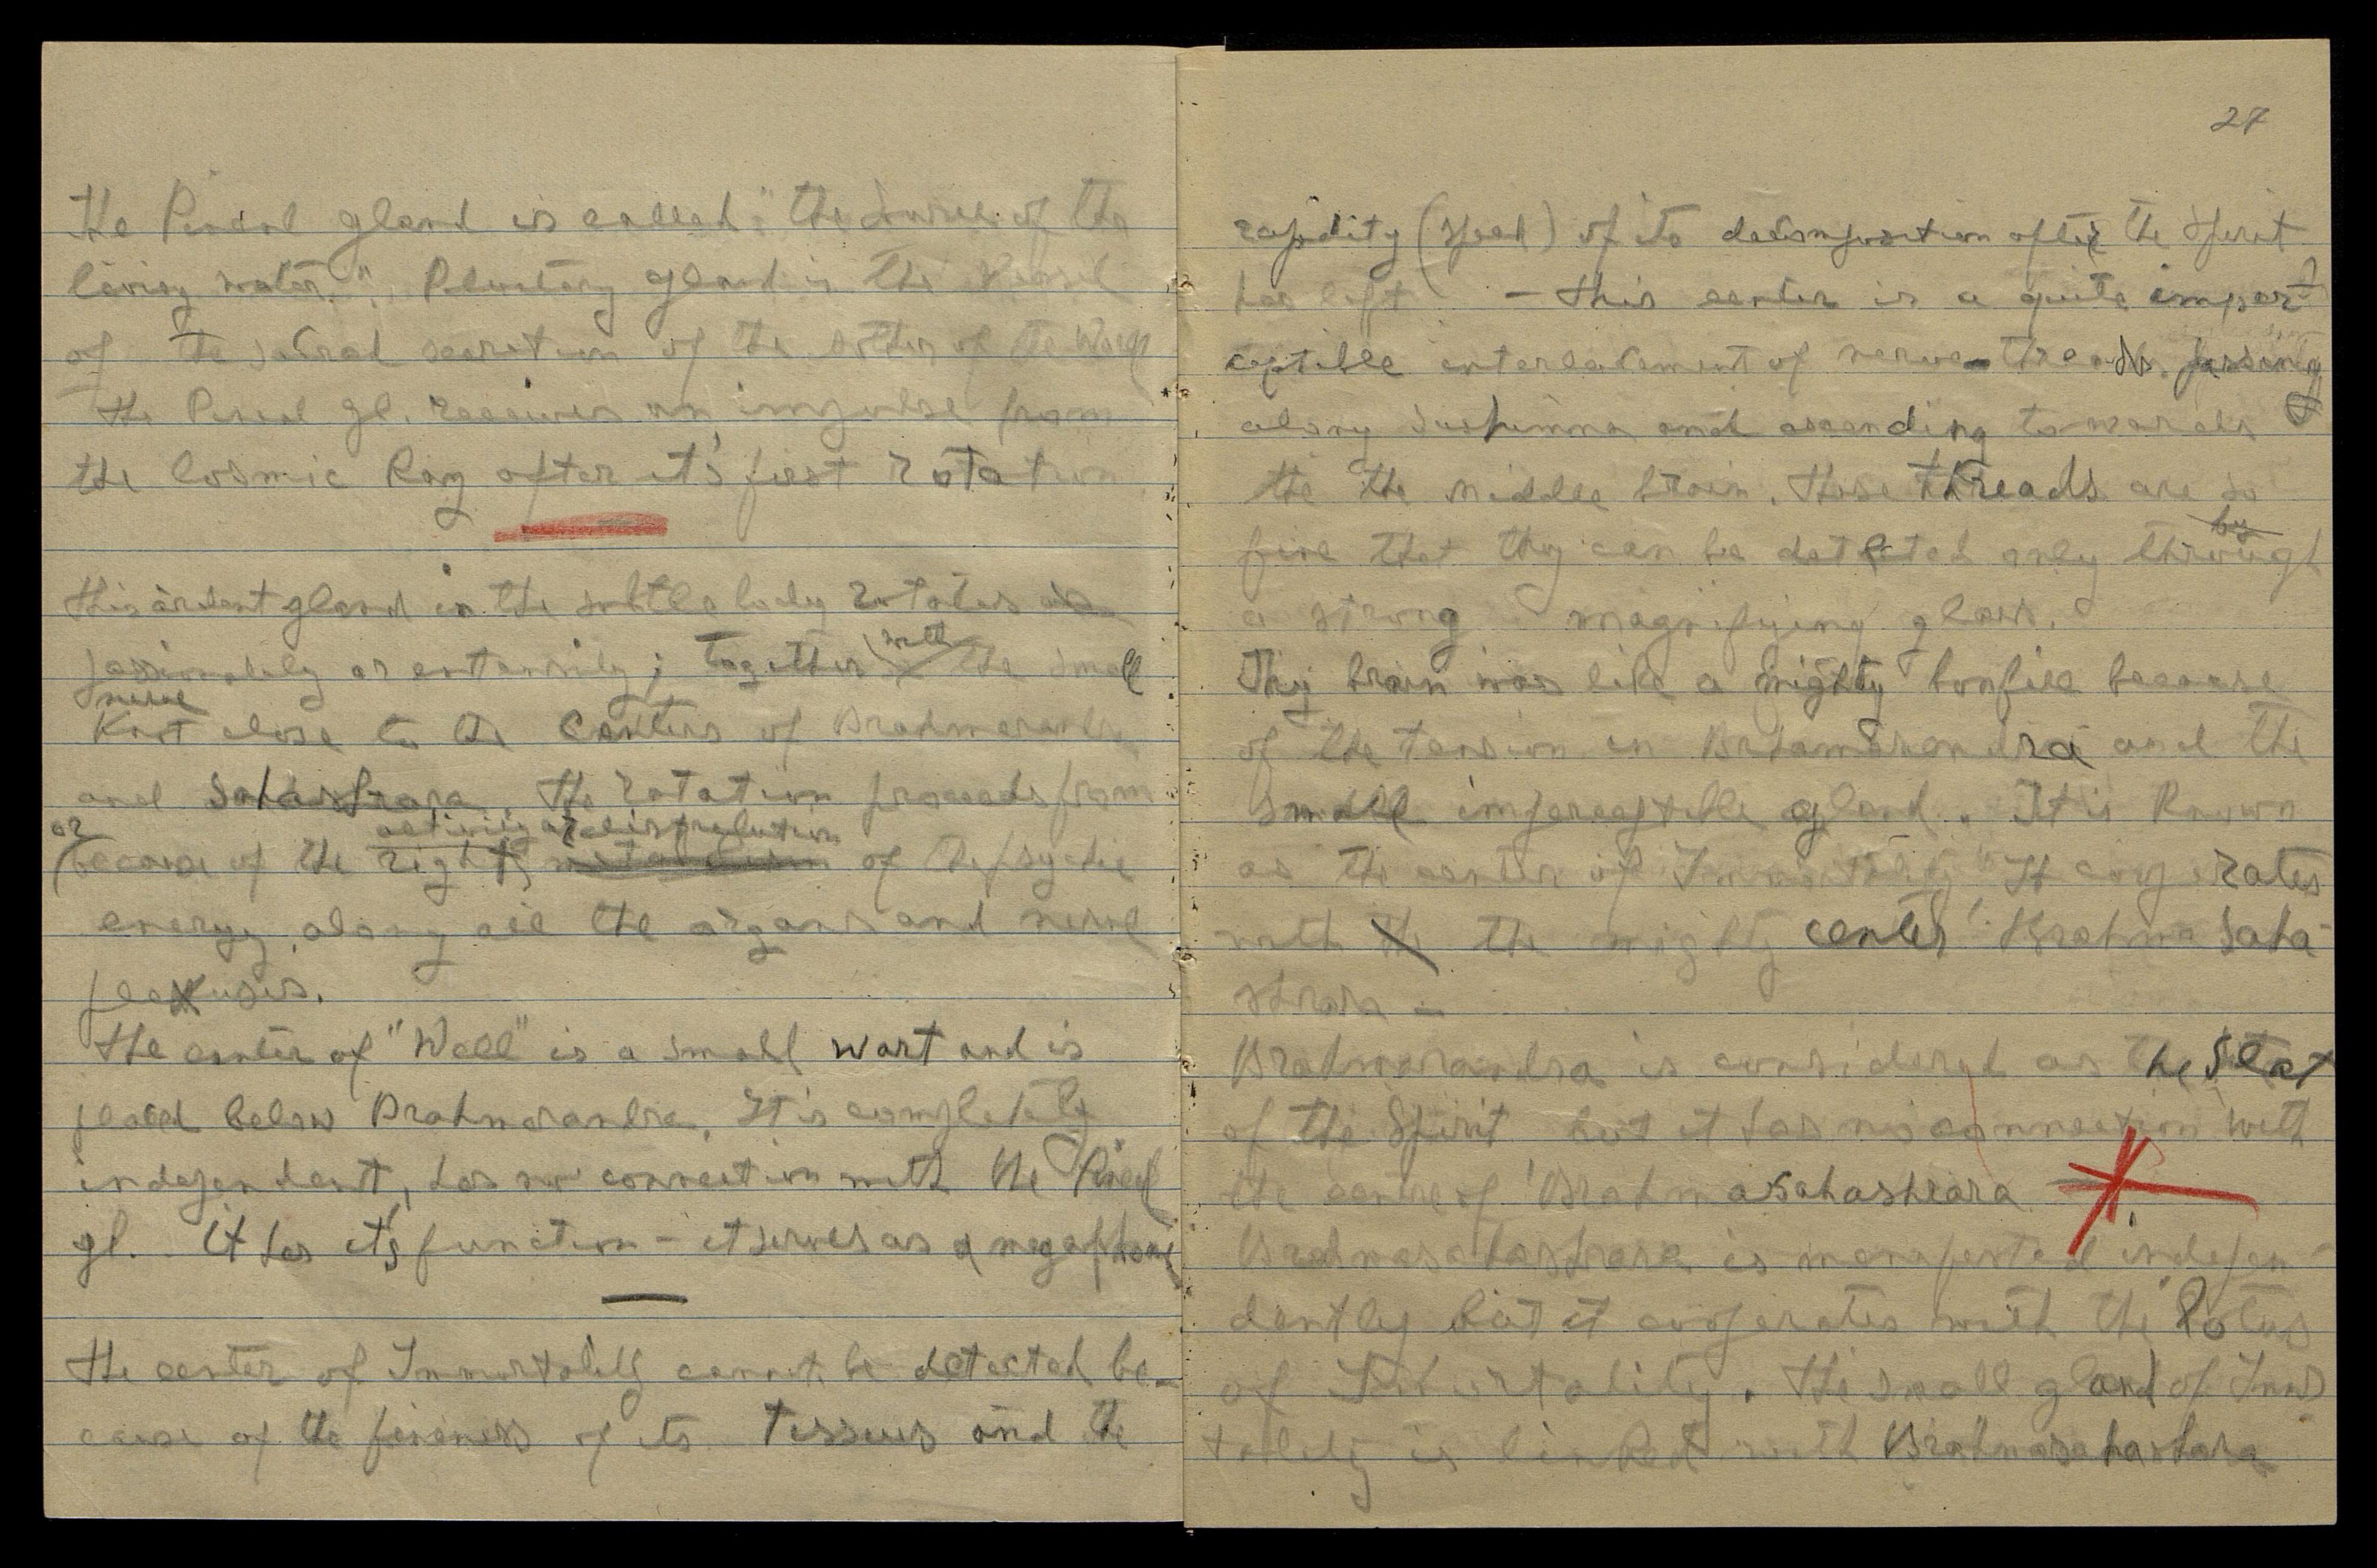 The Pineal gland is called: "the Source of the
living water." Pituitary gland is the Vessel
of the sacral secretion of the Mother of the World
the Pineal gl. receives an impulse from
the Cosmic Ray after it's first rotation
this ardent gland in the subtle body rotates
together with the small
nerve
Knot close to the Centers of Brahmarandra
and Sahasrara. The rotation proceeds from
or activity or distribution
(because of the right metabolism of the psychic
energy along all the organs and nerve
plexuses.
The center of "Well" is a small wart and is
placed below Brahmarandra. It is completely
independent, has no connection with the Pineal
gl. It has it's function - it serves as a megaphone
The center of Immortality cannot be detected be-
cause of the fineness of its tissues and the
27
rapidity (speed) of its decomposition after the Spirit
has left - this center is a quite imper-
ceptible interlacement of nerve-threads passing
along Sushumna and ascending towards
the the middle brain. Those threads are so
by
fine that they can be detected only through
a strong magnifying glass.
Thy brain was like a mighty bonfire because
of the tension in Brahmarandra and the
small imperceptible gland. It is known
as the center of Immortality" It cooperates
with the the mighty center Brahma Saha-
shrara -
Brahmarandra is considered as the Seat
of the Spirit but it has no connection with
the centre of Brahmasahashrara
Brahmasahasrara is manifested indepen-
dently but it cooperates with the Lotus
of Immortality. The small gland of Immor
tality is linked with Brahmasahashara